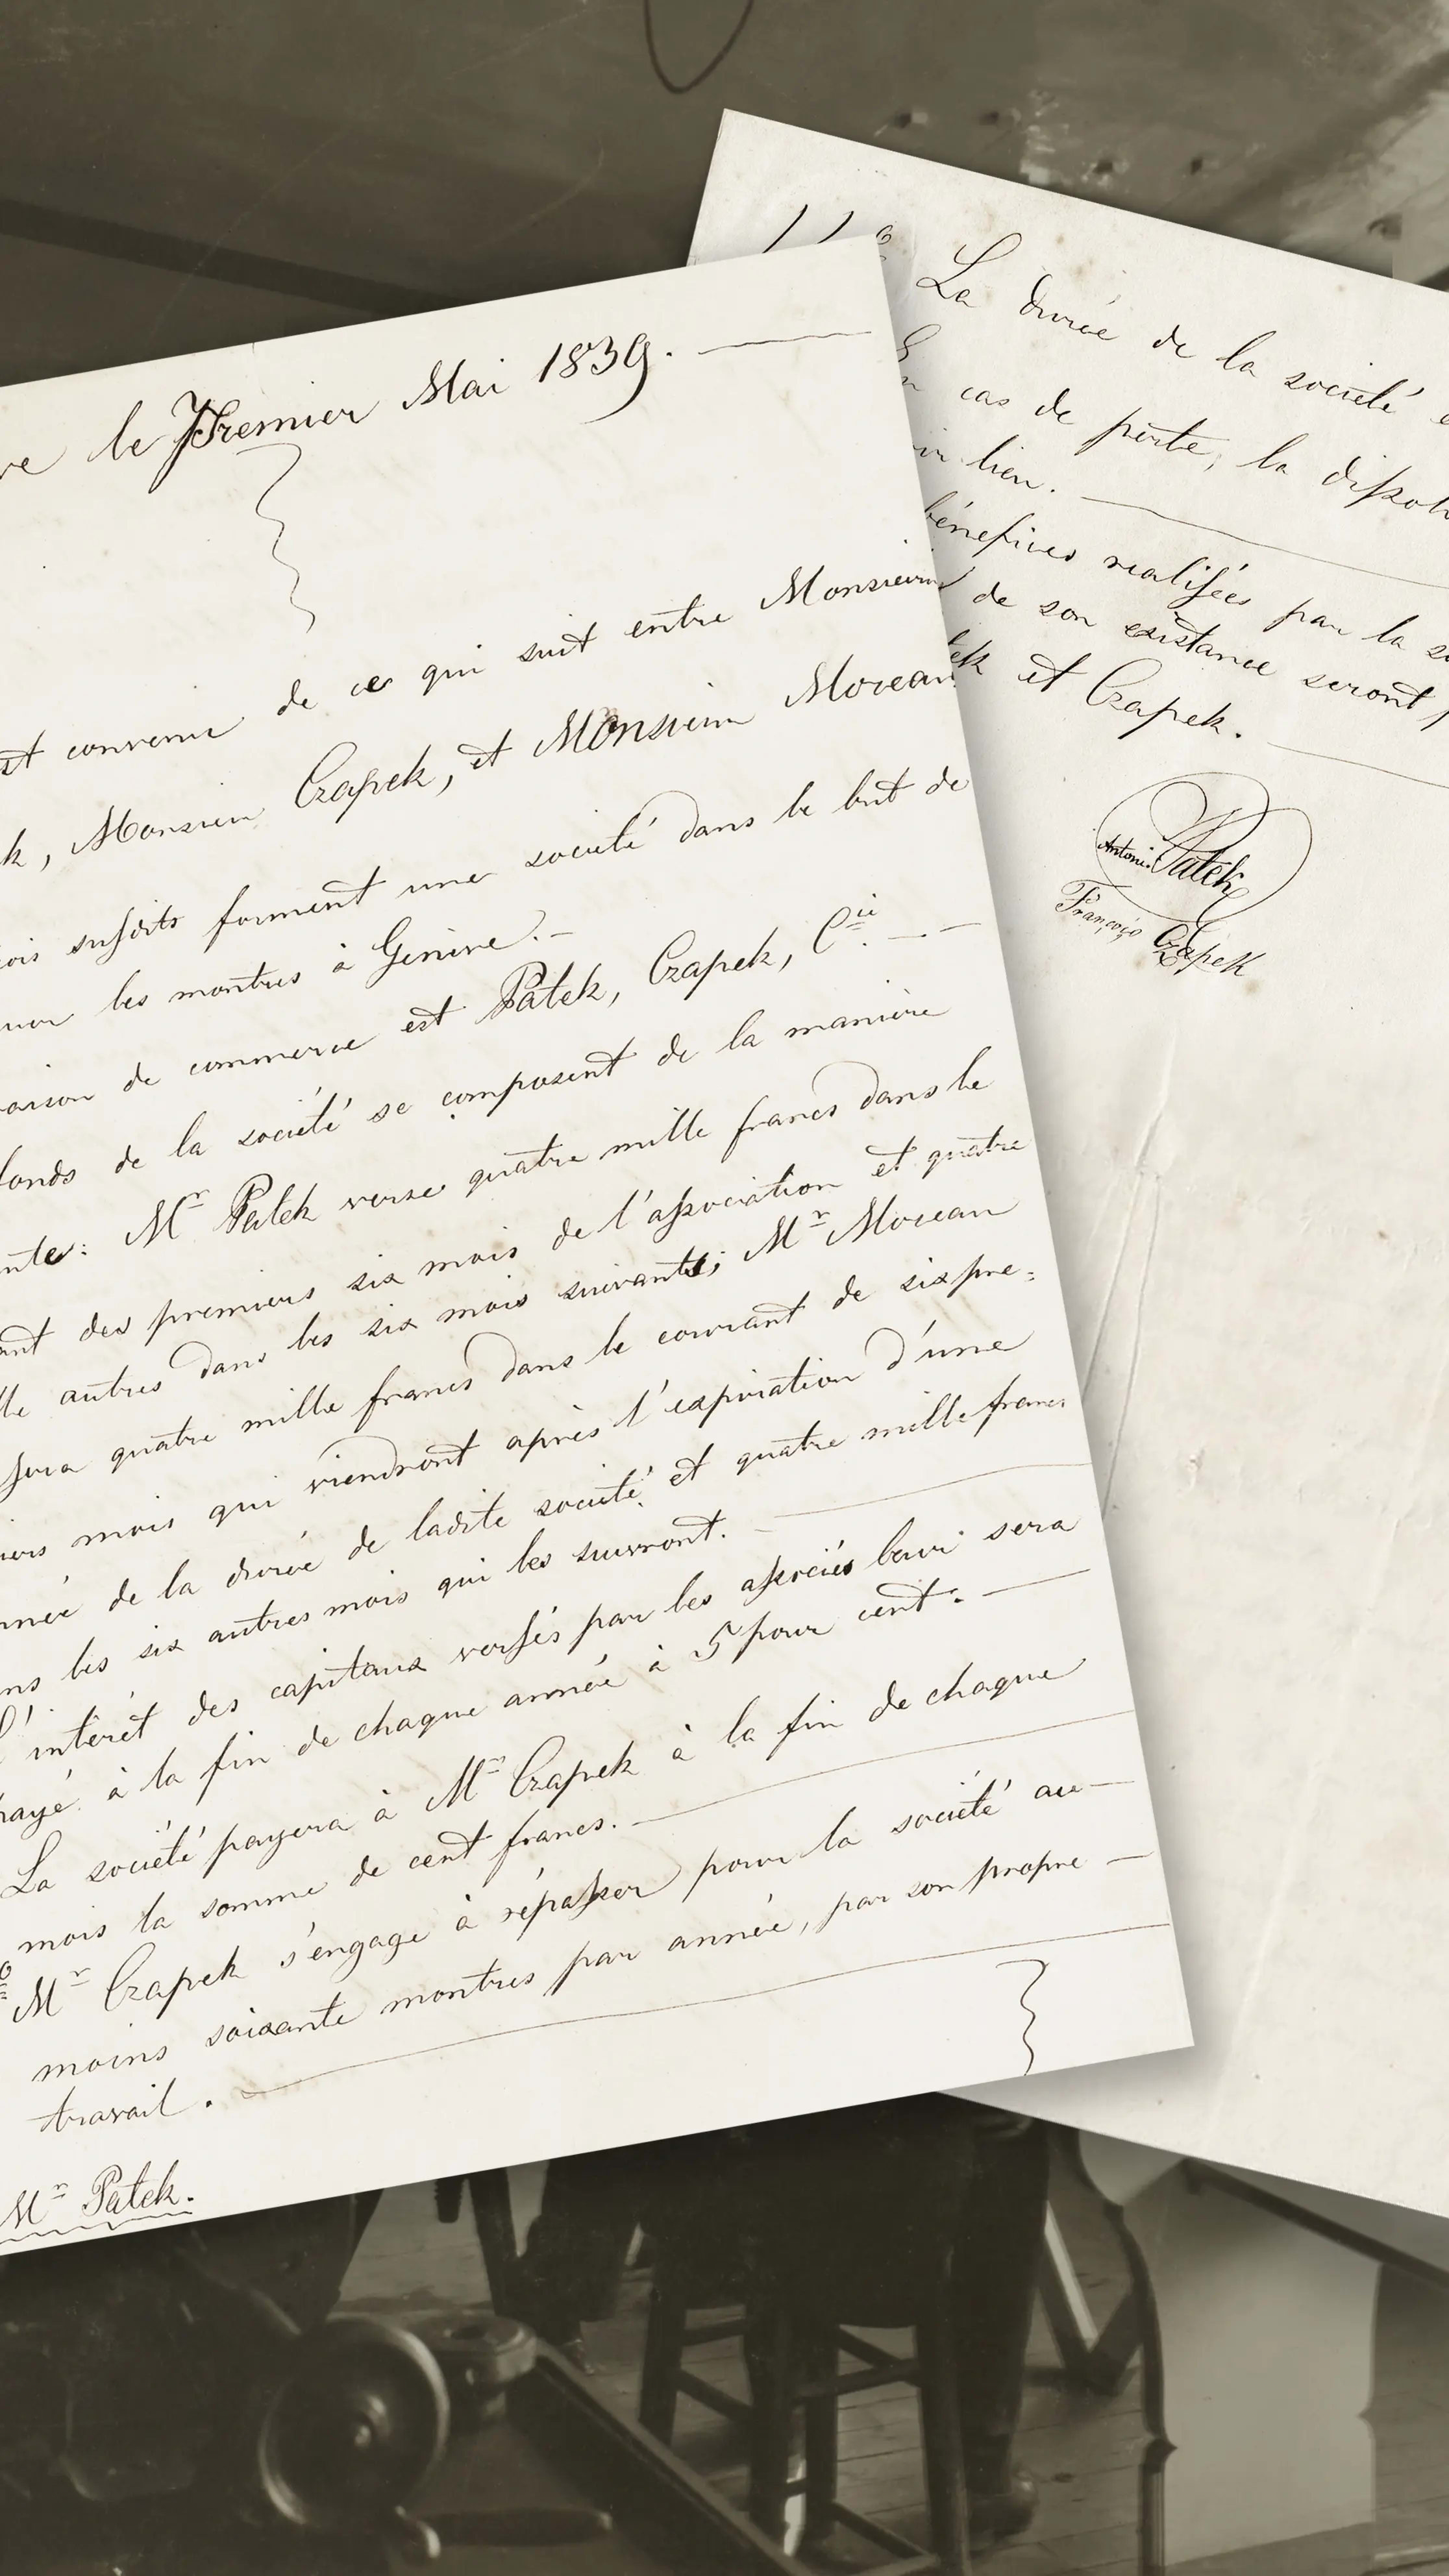 le Premier Mai 1839.
convenu de ce qui suit entre Monsieur
k, Monsieur Czapek, et Monsieur Moreau
susdits forment une société dans le but de
les montres à Genève.
de commerce est Patek, Czapek, Cie.
fonds de la société se composent de la manière
nte: Mr Patek verse quatre mille francs dans le
des premiers six mois de l'association et quatre
autres dans les six mois suivants; Mr Moreau
quatre mille francs dans le courant de six pre=
mois qui viendront après l'expiration d'une
née de la durée de ladite société et quatre mille francs
ns les six autres mois qui les suivront.
L'intérêt des capitaux versés par les associés leur sera
payé à la fin de chaque année à 5 pour cent.
La société payera à Mr Czapek à la fin de chaque
mois la somme de cent francs.
Mr Czapek s'engage à répasser pour la société au
moins soixante montres par année, par son propre
travail.
Mr Patek.
La durée de la société
cas de perte, la dissol
lieu.
bénéfices realisées par la s
de son existance seront
tek et Czapek.
Antoni Patek
François Czapek